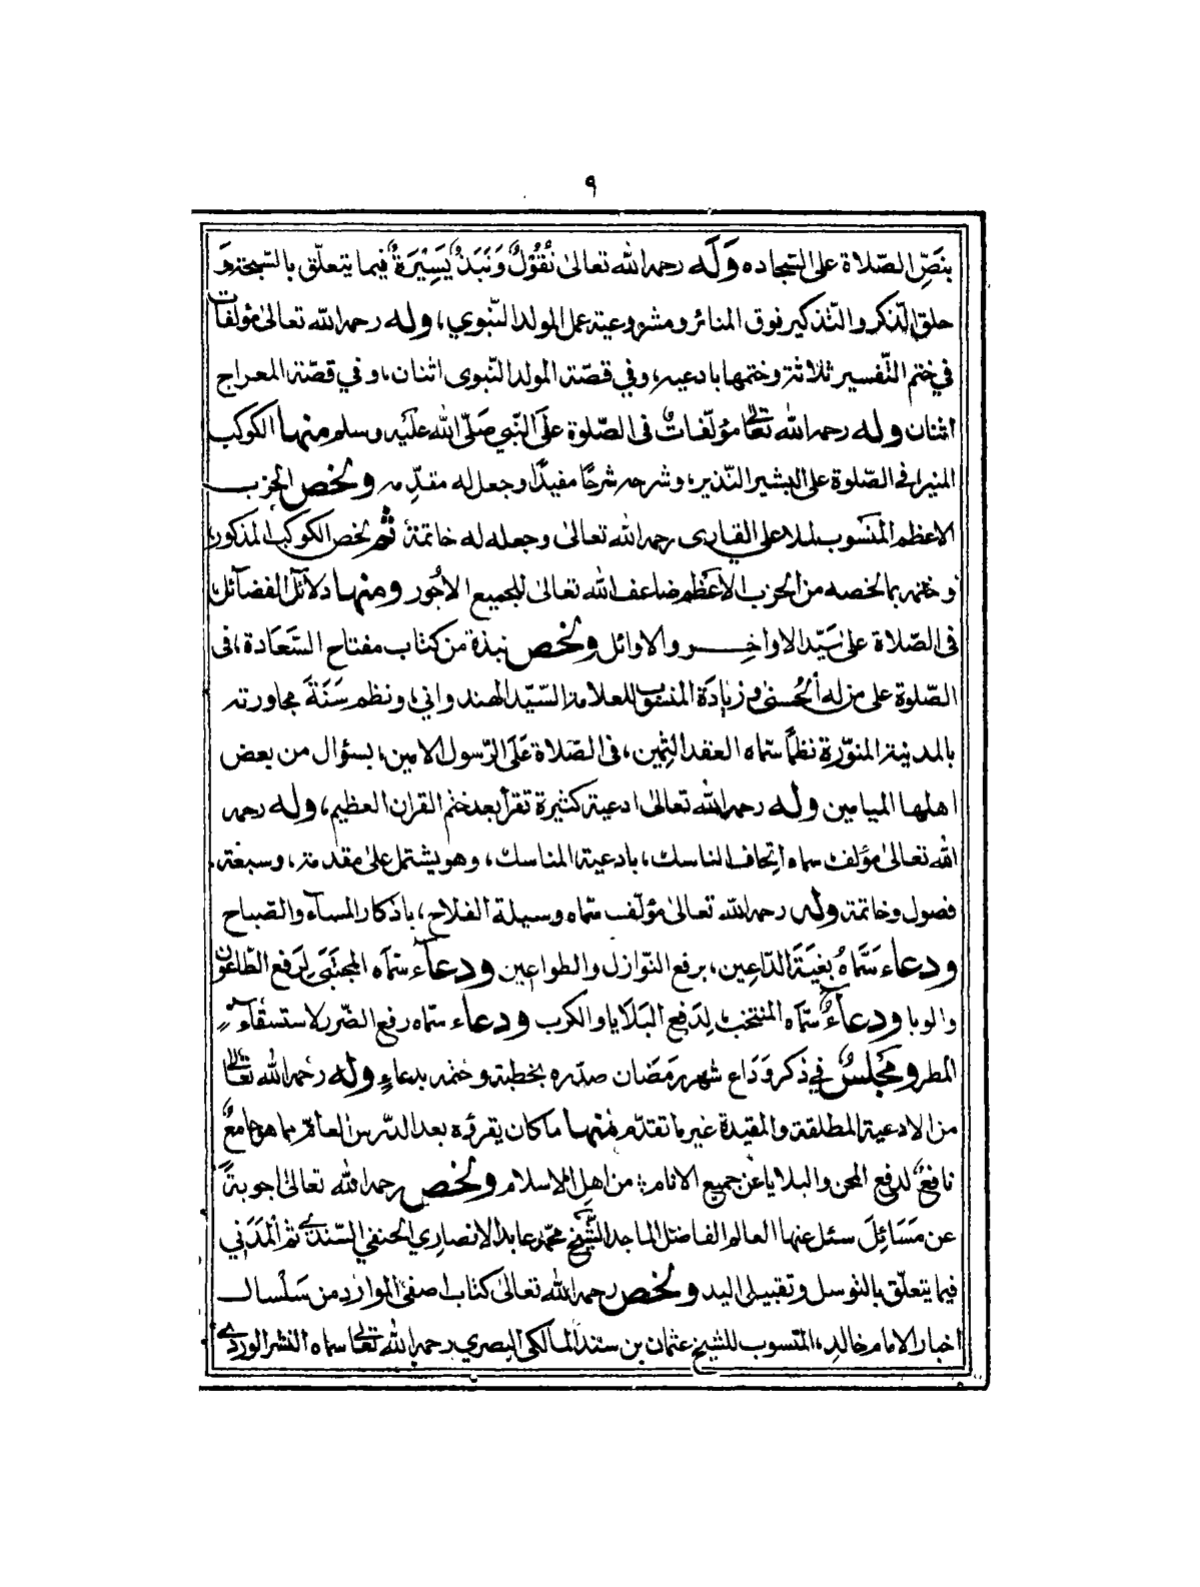 ٩
بنَصِّ الصّلاة على السّجاده وَلَه رحمه الله تعالىٰ نُقُوُلٌ وَنَبَذٌ يَسِيْرَةٌ فيما يتعلّق بالسّبحة وَ
حلق الذكر والتّذكير فوق المنائر ومشروعية عمل المولد النّبوي، وله رحمه الله تعالىٰ مؤلفات
في ختم التّفسير ثلاثة وختمها بادعيه، وفي قصّة المولد النّبوى اثنان، وفي قصّة المعراج
اثنان وله رحمه الله تعالىٰ مؤلّفاتٌ فى الصّلوة علَى النّبي صَلّى الله عَلَيه وسلم منها الكوكب
المنير فى الصّلوة على البشير النّذير، وشرحه شرحًا مفيدًا وجعل له مقدّمه ولخص الحزب
الاعظم المنسوب لملا على القارى رحمه الله تعالىٰ وجعله له خاتمة ثم لخص الكوكب المذكور
وختمه بما لخصه من الحزب الاعظم ضاعف الله تعالىٰ للجميع الاجُور ومنها دلآئل الفضآئل
فى الصّلاة على سَيّد الاواخِر والاوائل ولخص نبذة من كتاب مفتاح السَّعَادة، فى
الصّلوة على من له الحُسنىٰ وزيادَة المنسوب للعلامة السّيّد الهندواني، ونظم سَنَة مجاورته
بالمدينة المنوّرة نظمًا سمّاه العقد الثمين، فى الصّلاة عَلَى الرّسول الامين، بسؤال من بعض
اهلها الميامين وله رحمه الله تعالىٰ ادعية كثيرة تقرأ بعد ختم القران العظيم، وله رحمه
الله تعالىٰ مؤلف سماه اتحاف الناسك، بادعية المناسك، وهو يشتمل على مقدمة، وسبعة
فصول وخاتمة وله رحمه الله تعالىٰ مؤلّف سمّاه وسيلة الفلاح، باذكار المسآء والصّباح
ودعاء سَمَّاهُ بغيَةَ الدّاعِين، برفع النّوازل والطواعين ودعآء سمّاه المجتبَى لرَفع الطّاعون
والوبا ودعآءٌ سمّاه المنتخب لِدَفع البَلَايا والكرب ودعاء سمّاه رفع الضّرر لاستسقآء
المطر ومَجلسٌ في ذكر وَدَاع شهر رمَضَان صدّره بخطبة وختمه بدعاءٍ وله رحمه الله تعالىٰ
من الادعية المطلقة والمقيدة غير ما تقدّم فمنها ما كان يقرؤه بعد الدّرس العامّ مما هو جامعٌ
نافعٌ لدفع المحن والبلايا عن جميع الانام، من اهل الاسلام ولخص رحمه الله تعالىٰ اجوبةً
عن مَسَائِلَ سئل عنها العالم الفاضل الماجد الشّيخ محمّد عابد الانصاري الحنفي السّندي ثم المدَني
فيما يتعلّق بالتوسل وتقبيل اليد ولخص رحمه الله تعالىٰ كتاب اصفى الموارد من سَلْسال
اخبار الامام خالد، المنسوب للشيخ عثمان بن سند المالكى البصري رحمه الله تعالىٰ سماه النشر الوردي